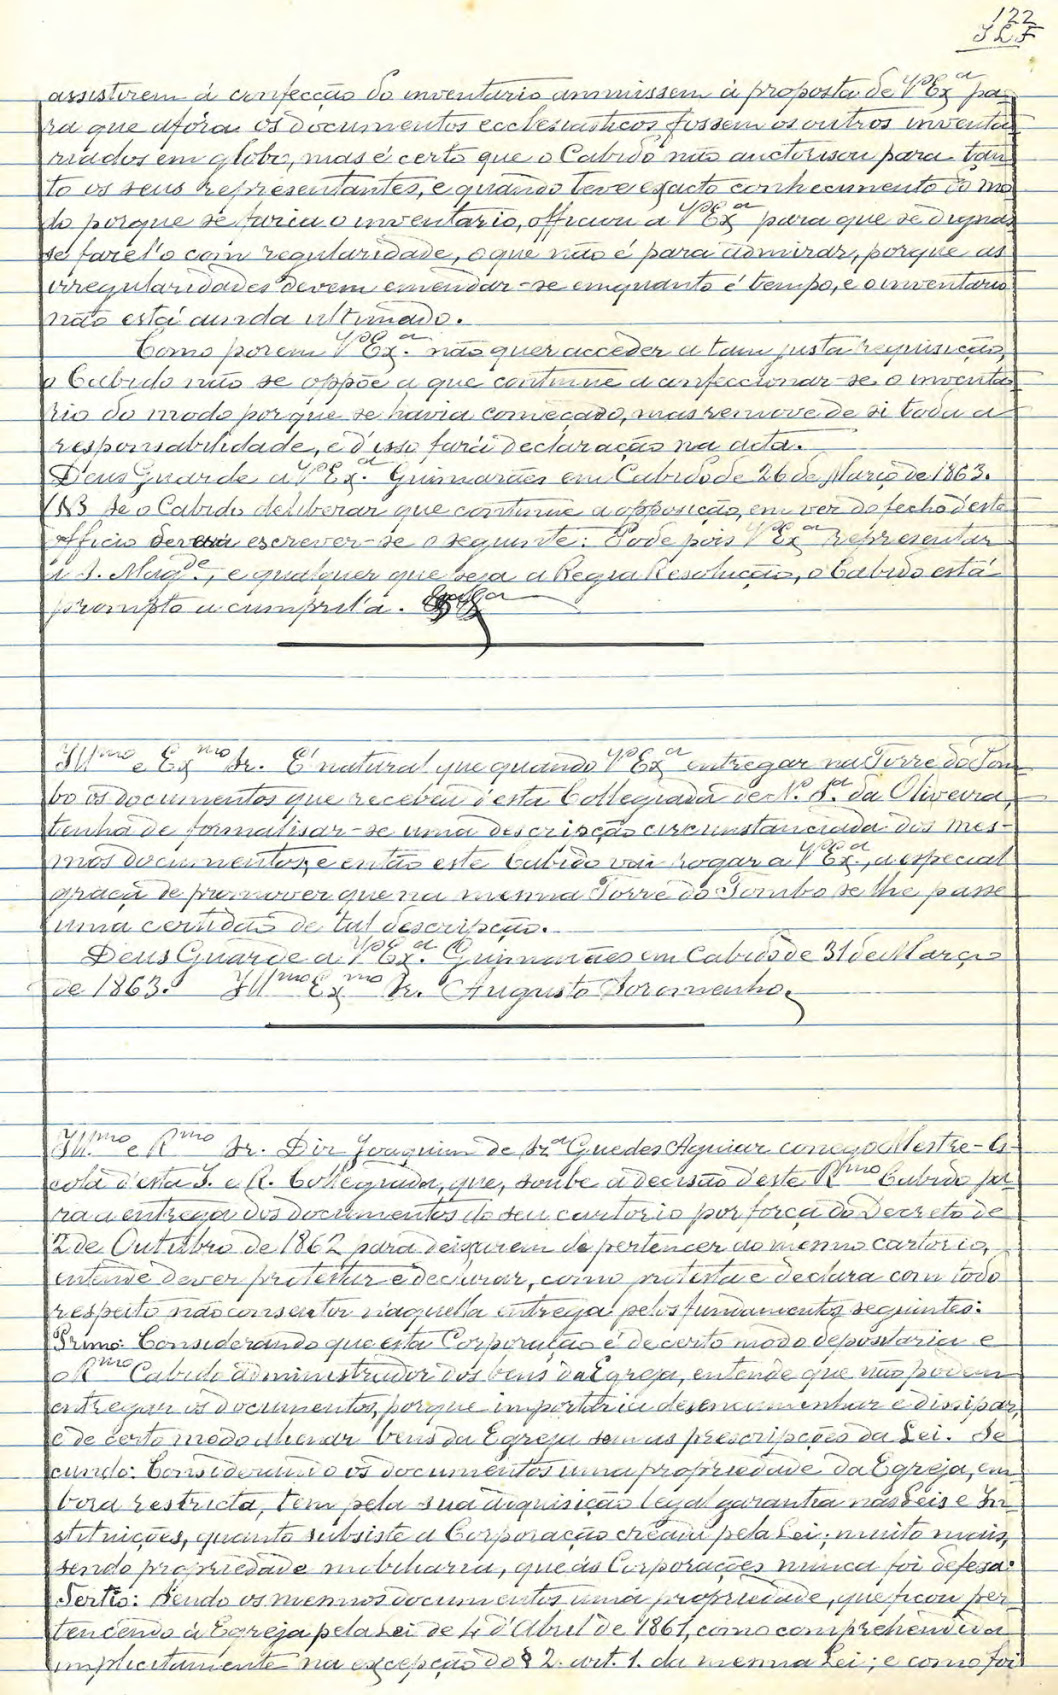 122
assistirem á confecção do inventario annuissem á proposta de V.ª Ex.ª pa-
ra que afóra os documentos ecclesiasticos fossem os outros inventa-
riados em globo, mas é certo que o Cabido não auctorisou para tan-
to os seus representantes, e quando teve exacto conhecimento do mo-
do porque se faria o inventario, officiou a V.ª Ex.ª para que se dignas-
se farel'o com regularidade, o que não é para admirar, porque as
irregularidades devem emendar-se emquanto é tempo, e o inventario
não está ainda ultimado.
Como porem V.ª Ex.ª não quer acceder a tam justa requisição,
o Cabido não se oppõe a que continue a confeccionar-se o inventa-
rio do modo por que se havia começado, mas remove de si toda a
responsabilidade, e d'isso fará declaração na acta.
Deus Guarde a V.ª Ex.ª Guimarães em Cabido de 26 de Março de 1863.
NB Se o Cabido deliberar que continue a opposição, em ver do fecho d'este
officio deverá escrever-se o seguinte: Póde pois V.ª Ex.ª representar
a S. Mag.de, e qualquer que seja a Regia Resolução, o Cabido está
prompto a cumpril'a.
Ill.mo e Ex.mo Sr. É natural que quando V.ª Ex.ª entregar na Torre do Tom-
bo os documentos que recebeu d'esta Collegiada de N. S.ª da Oliveira,
tenha de formalisar-se uma descripção circunstanciada dos mes-
mos documentos, e então este Cabido vai rogar a V.ª Ex.ª, a especial
graça de promover que na mesma Torre do Tombo se lhe passe
uma certidão de tal descripção.
Deus Guarde a V.ª Ex.ª Guimarães em Cabido de 31 de Março
de 1863. Ill.mo Ex.mo Sr. Augusto Soromenho.
Ill.mo e R.mo Sr. Diz Joaquim de Sz.ª Guedes Aguiar conego Mestre-Es-
cola d'esta I. e R. Collegiada, que, soube a decisão d'este R.mo Cabido pa-
ra a entrega dos documentos do seu cartorio por força do Decreto de
2 de Outubro de 1862 para deixarem de pertencer ao mesmo cartorio,
entende dever protestar e declarar, como protesta e declara com todo
respeito não consentir n'aquella entrega pelos fundamentos seguintes:
Primo: Considerando que esta Corporação é de certo modo depositaria e
o R.mo Cabido administrador dos bens da Egreja, entende que não podem
entregar os documentos, porque importaria desencaminhar e dissipar,
e de certo modo alienar bens da Egreja sem as prescripções da Lei. Se-
cundo: Considerando os documentos uma propriedade da Egreja, em-
bora restricta, tem pela sua acquisição legal garantia nas Leis e In-
stituições, quanto subsiste a Corporação creada pela Lei; muito mais,
sendo propriedade mobiliaria, que ás Corporações nunca foi defesa.
Tertio: Sendo os mesmos documentos uma propriedade, que ficou per-
tencendo á Egreja pela Lei de 4 d'Abril de 1861, como comprehendida
implicitamente na excepção do § 2. art. 1. da mesma Lei; e como foi